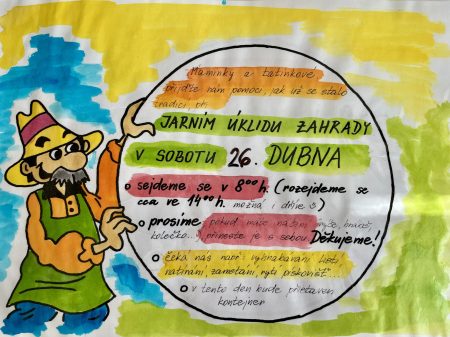 Maminky a tatínkové
přijďte nám pomoci, jak už se stalo
tradicí, při
JARNÍM ÚKLIDU ZAHRADY
V SOBOTU 26. DUBNA
sejdeme se v 8⁰⁰ h. (rozejdeme se
cca ve 14⁰⁰ h. možná i dříve :)
prosíme, pokud máte něčím rýče, hrábě,
kolečko... přineste je s sebou. Děkujeme!
čeká nás např. vyhrabávání listí,
natírání, zametání, rytí pískovišť...
v tento den bude přistaven
kontejner